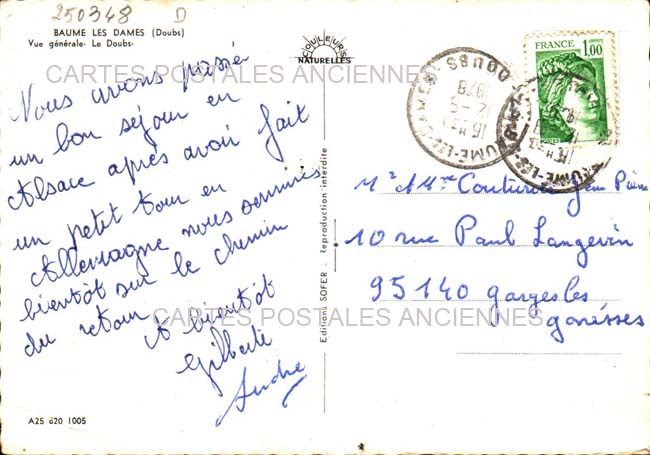 250348 D
BAUME LES DAMES (Doubs)
Vue générale- Le Doubs-
COULEURS
NATURELLES
FRANCE
1,00
CARTES POSTALES ANCIENNES
Nous avons passé
un bon séjour en
Alsace après avoir fait
un petit tour en
Allemagne nous sommes
bientôt sur le chemin
du retour
A bientôt
Gilberte
André
BAUME-LES-DAMES DOUBS
16 H
12-9
1978
Mr et Mme Couturon Jean Pierre
10 rue Paul Langevin
95140 garges les
gonesses
CARTES POSTALES ANCIENNES
Editions SOFER - Reproduction interdite
A25 620 1005